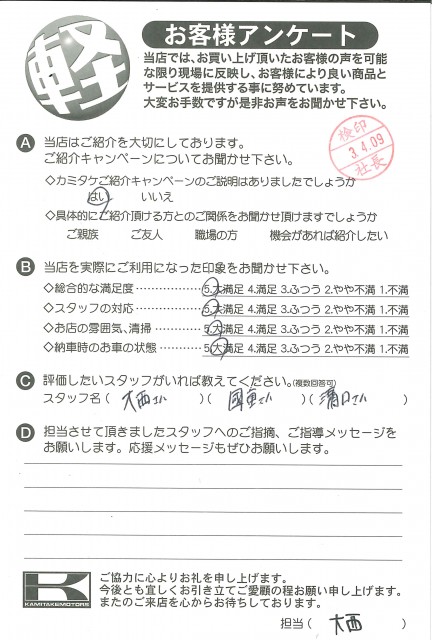 軽
お客様アンケート
当店では、お買い上げ頂いたお客様の声を可能
な限り現場に反映し、お客様により良い商品と
サービスを提供する事に努めています。
大変お手数ですが是非お声をお聞かせ下さい。
A 当店はご紹介を大切にしております。
ご紹介キャンペーンについてお聞かせ下さい。
検印
3.4.09
社長
◇カミタケご紹介キャンペーンのご説明はありましたでしょうか
はい いいえ
◇具体的にご紹介頂ける方とのご関係をお聞かせ頂けますでしょうか
ご親族 ご友人 職場の方 機会があれば紹介したい
B 当店を実際にご利用になった印象をお聞かせ下さい。
◇総合的な満足度 ⋯⋯⋯⋯⋯ 5.大満足 4.満足 3.ふつう 2.やや不満 1.不満
◇スタッフの対応 ⋯⋯⋯⋯⋯ 5.大満足 4.満足 3.ふつう 2.やや不満 1.不満
◇お店の雰囲気、清掃 ⋯⋯⋯ 5.大満足 4.満足 3.ふつう 2.やや不満 1.不満
◇納車時のお車の状態 ⋯⋯⋯ 5.大満足 4.満足 3.ふつう 2.やや不満 1.不満
C 評価したいスタッフがいれば教えてください。(複数回答可)
スタッフ名 ( 大西さん )( さん )( 溝口さん )
D 担当させて頂きましたスタッフへのご指摘、ご指導メッセージを
お願いします。応援メッセージもぜひお願いします。
K
KAMITAKEMOTORS
ご協力に心よりお礼を申し上げます。
今後とも宜しくお引き立てご愛顧の程お願い申し上げます。
またのご来店を心からお待ちしております。
担当 ( 大西 )